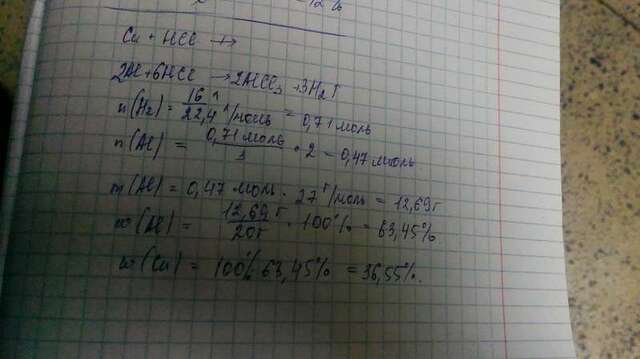 Cu + HCl ↛
2Al+6HCl → 2AlCl₃ +3H₂↑
n(H₂) = 16 л / 22,4 л/моль = 0,71 моль
n(Al) = 0,71 моль / 3 • 2 = 0,47 моль
m(Al) = 0,47 моль • 27 г/моль = 12,69г
w(Al) = 12,69 г / 20г • 100% = 63,45%
w(Cu) = 100% 63,45% = 36,55%.